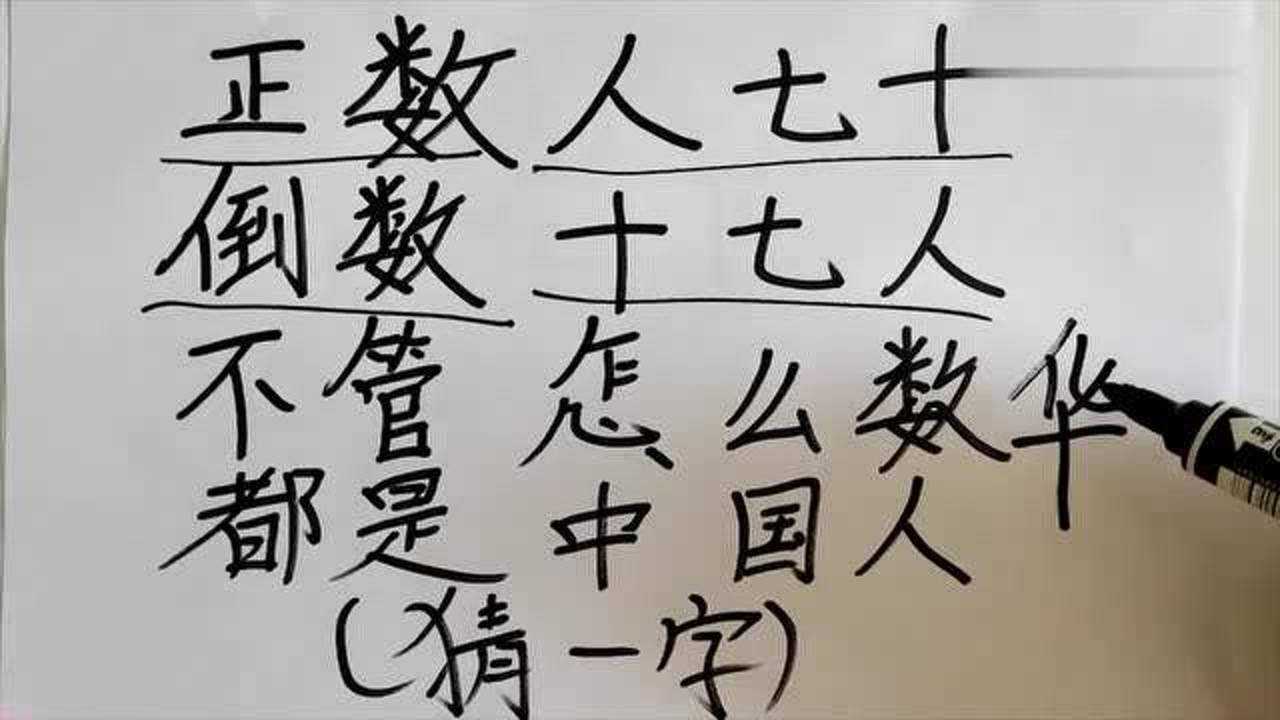 正数人七十
倒数十七人
不管怎么数 华
都是中国人
(猜一字)